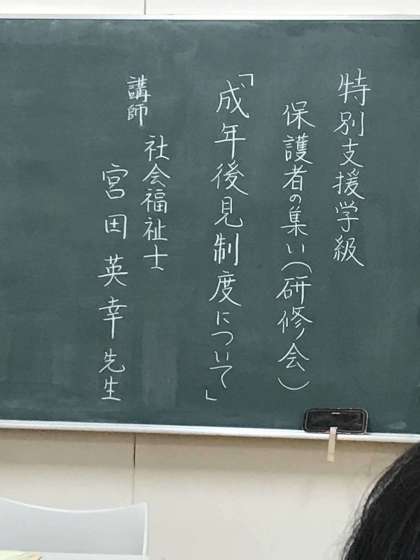 特別支援学級
保護者の集い(研修会)
「成年後見制度について」
講師
社会福祉士
宮田英幸先生